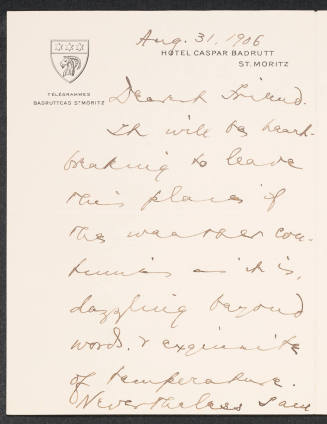 Aug. 31, 1906
HOTEL CASPAR BADRUTT
ST. MORITZ
TÉLÉGRAMMES
BADRUTTCAS ST MORITZ
Dearest Friend.
It will be heart-
breaking to leave
this place if
the weather con-
tinues as it is,
dazzling beyond
words. & exquisite
of temperature.
Nevertheless I am